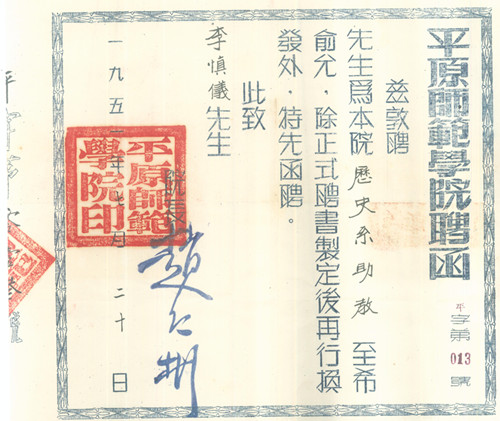 平原師範學院聘函
平字第013號
茲敦聘
先生爲本院歷史系助教 至希
俞允,除正式聘書製定後再行換
發外,特先函聘。
此致
李慎儀先生
院長 趙紀彬
平原師範學院印
一九五一年七月二十日